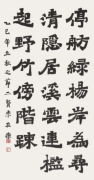 停舫綠楊岸尋
清隱居溪雲連檻
起野竹傍階疎
乙巳年立秋之節